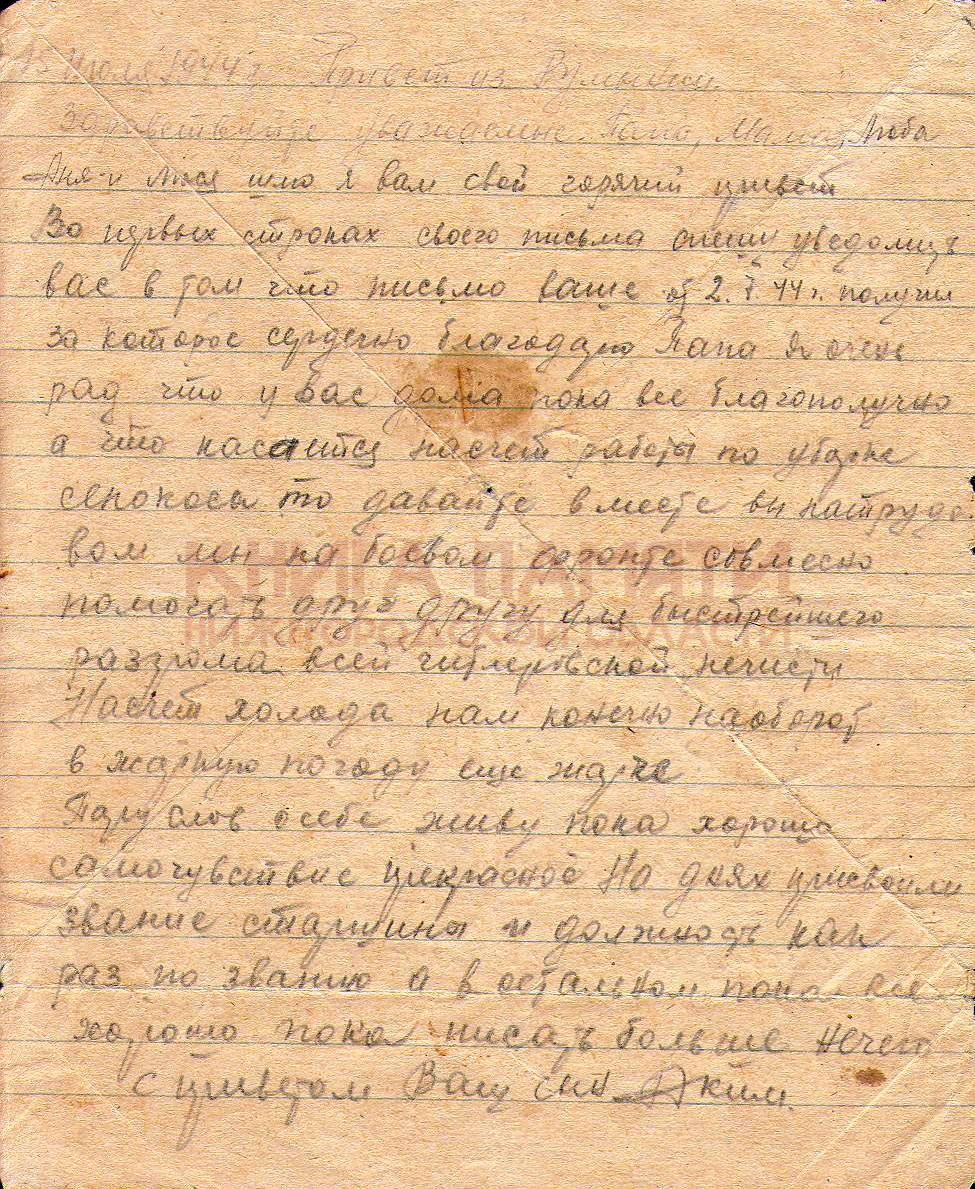 15 июля 1944 г. Привет из Румынии.
Здравствуйте уважаемые Папа, Мама, Люба
Аня и Люся шлю я вам свой горячий привет
Во первых строках своего письма спешу уведомить
вас в том что письмо ваше от 2. 44 г. получил
за которое сердечно благодарю Папа я очень
рад что у вас дома пока все благополучно
а что касаится насчет работы по уборке
сенокоса то давайте вместе вы на трудо
вом мы на боевом фронте совмесно
помогать друг другу для быстрейшего
разгрома всей гитлеровской нечисти
Насчет холода нам конечно наоборот
в жаркую погоду еще жарче
Пару слов о себе живу пока хорошо
самочувствие прекрасное На днях присвоили
звание старшины и должность как
раз по званию а в остальном пока все
хорошо пока писать больше нечего
с приветом Ваш сын Аким.
КНИГА ПАМЯТИ
НИЖЕГОРОДСКОЙ ОБЛАСТИ